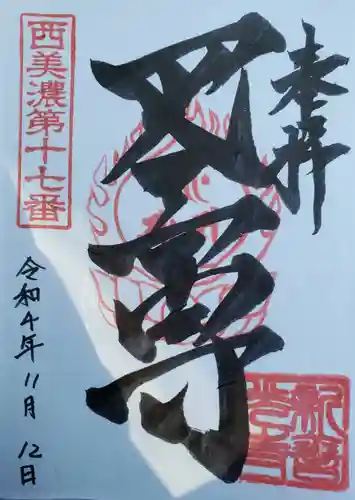 奉拝
西美濃第十七番
新善
光寺
令和4年11月12日